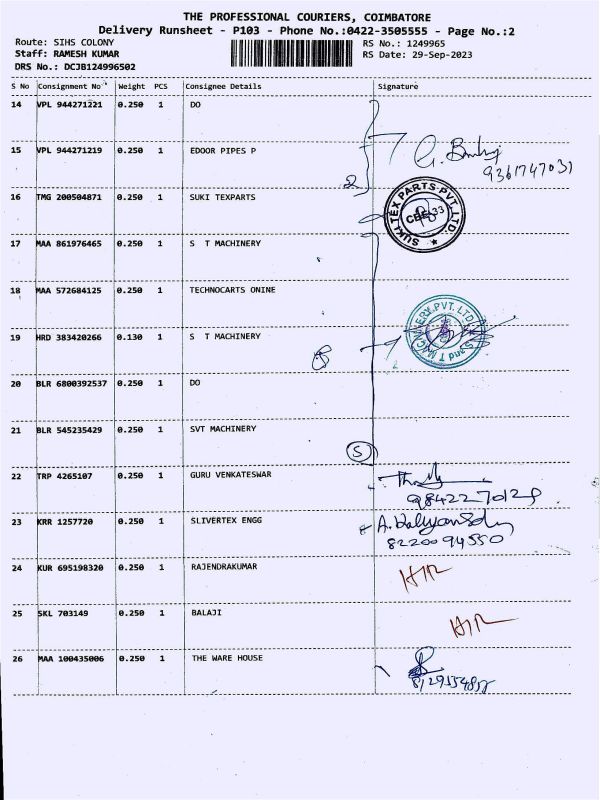 THE PROFESSIONAL COURIERS, COIMBATORE
Delivery Runsheet - P103 - Phone No.:0422-3505555 - Page No.:2
Route: SIHS COLONY RS No.: 1249965
Staff: RAMESH KUMAR RS Date: 29-Sep-2023
DRS No.: DCJB124996502
S No Consignment No Weight PCS Consignee Details Signature
14 VPL 944271221 0.250 1 DO
15 VPL 944271219 0.250 1 EDOOR PIPES P
9361747031
2
16 TMG 200504871 0.250 1 SUKI TEXPARTS
SUKI TEX PARTS PVT. LTD.
CBE-33
17 MAA 861976465 0.250 1 S T MACHINERY
18 MAA 572684125 0.250 1 TECHNOCARTS ONINE
S and T MACHINERY PVT. LTD.
19 HRD 383420266 0.130 1 S T MACHINERY
20 BLR 6800392537 0.250 1 DO
21 BLR 545235429 0.250 1 SVT MACHINERY
5
22 TRP 4265107 0.250 1 GURU VENKATESWAR
23 KRR 1257720 0.250 1 SLIVERTEX ENGG
8220094550
24 KUR 695198320 0.250 1 RAJENDRAKUMAR
H/R
25 SKL 703149 0.250 1 BALAJI
H/R
26 MAA 100435006 0.250 1 THE WARE HOUSE